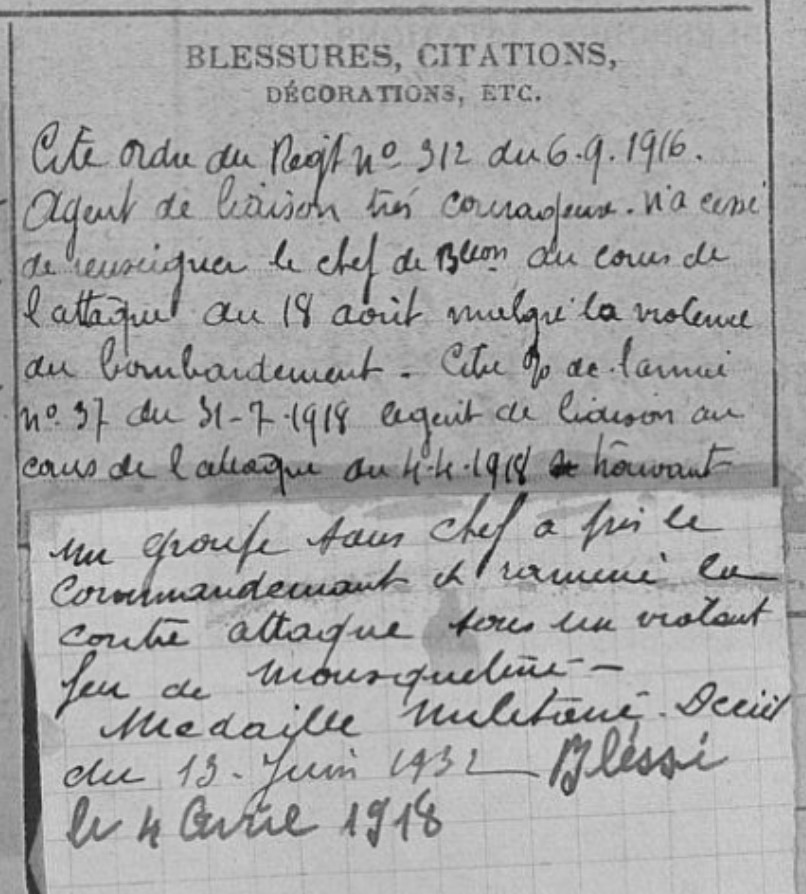 BLESSURES, CITATIONS,
DÉCORATIONS, ETC.
Cité ordre du Regt nº 312 du 6.9.1916.
Agent de liaison très courageux. N'a cessé
de renseigner le chef de Bton au cours de
l'attaque du 18 août malgré la violence
du bombardement - Cité % de l'armée
nº 37 du 31-7-1918 agent de liaison au
cours de l'attaque du 4.4.1918 trouvant
un groupe sans chef a pris le
commandemant et ramené la
contre attaque sous un violant
feu de mousqueterie -
Médaille Militaire. Décret
du 13 - Juin 1932 Bléssé
le 4 Avril 1918